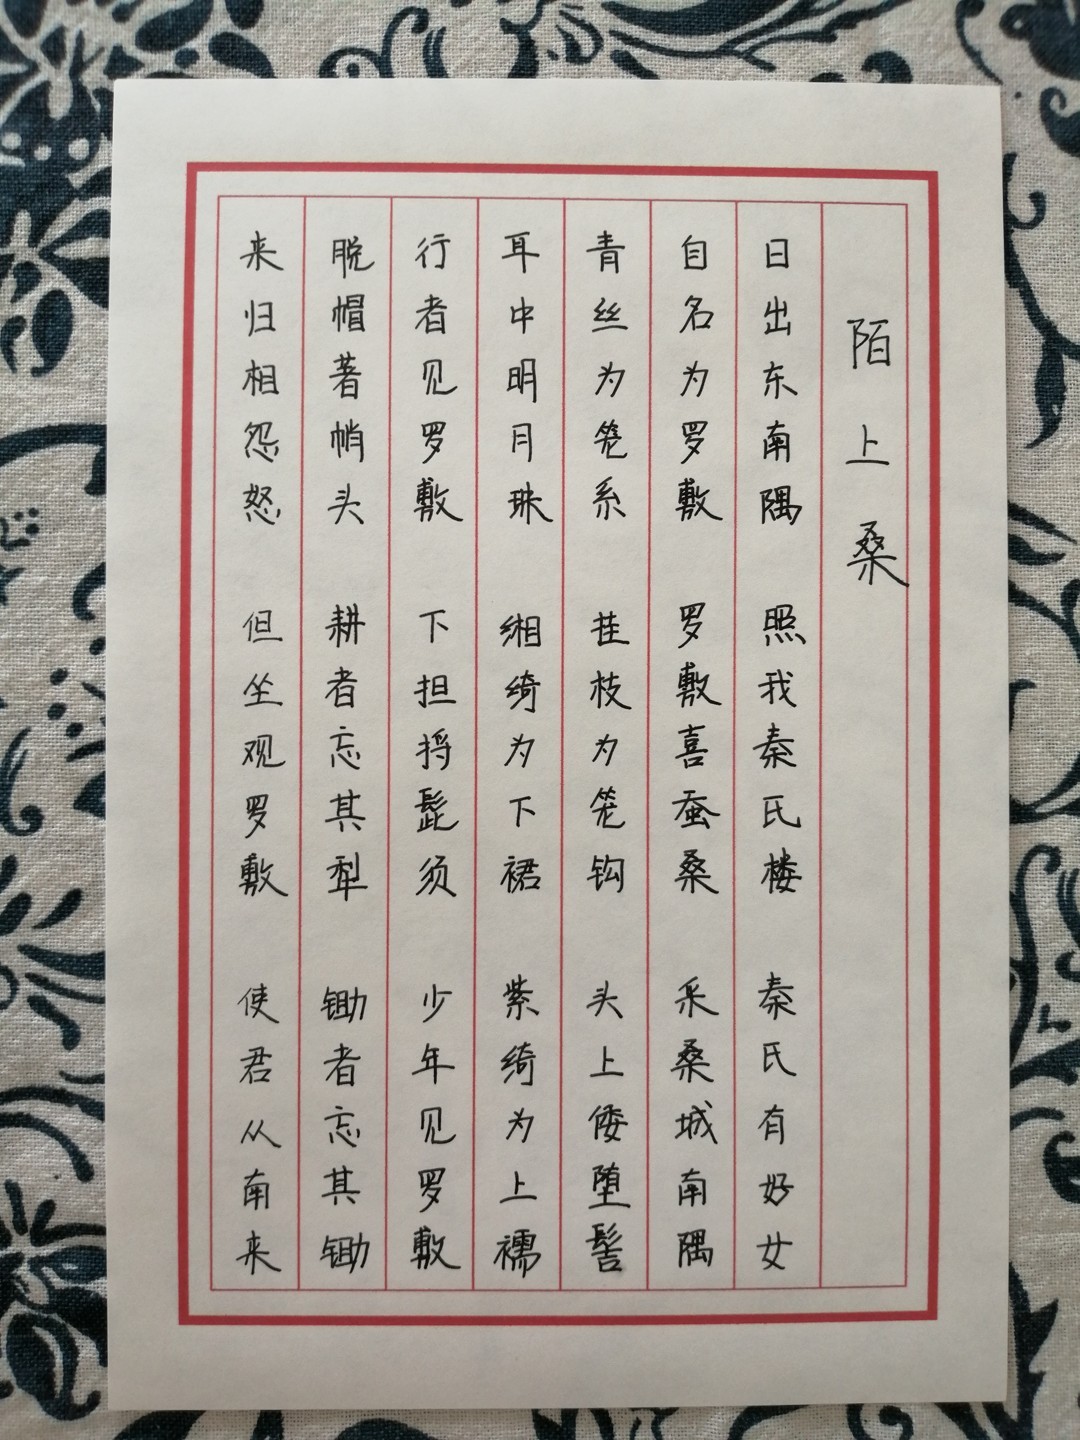 陌上桑
日出东南隅 照我秦氏楼 秦氏有好女
自名为罗敷 罗敷喜蚕桑 采桑城南隅
青丝为笼系 桂枝为笼钩 头上倭堕髻
耳中明月珠 缃绮为下裙 紫绮为上襦
行者见罗敷 下担捋髭须 少年见罗敷
脱帽著帩头 耕者忘其犁 锄者忘其锄
来归相怨怒 但坐观罗敷 使君从南来